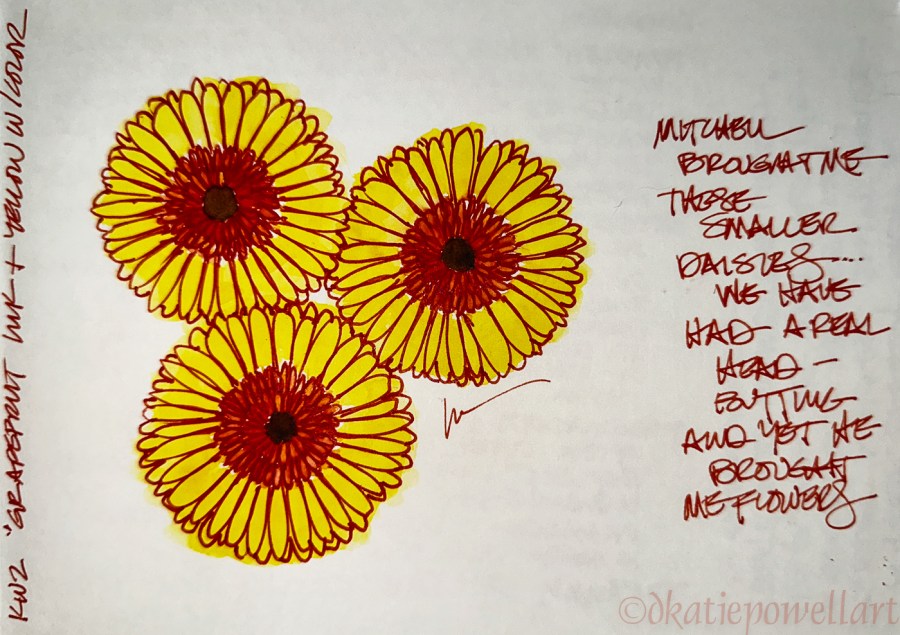 KWZ "GRAPEFRUIT INK + YELLOW W/COLOR
MITCHELL
BROUGHT ME
THESE
SMALLER
DAISIES....
WE HAVE
HAD A REAL
HEAD –
BUTTING
AND YET HE
BROUGHT
ME FLOWERS
©dkatiepowellart